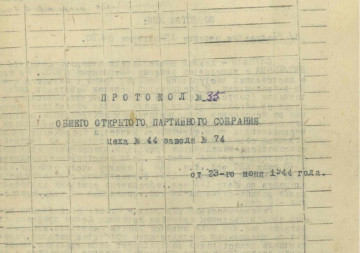 ПРОТОКОЛ № 35
ОБЩЕГО ОТКРЫТОГО ПАРТИЙНОГО СОБРАНИЕ
цеха № 44 завода № 74
от 23-го июня 1944 года.